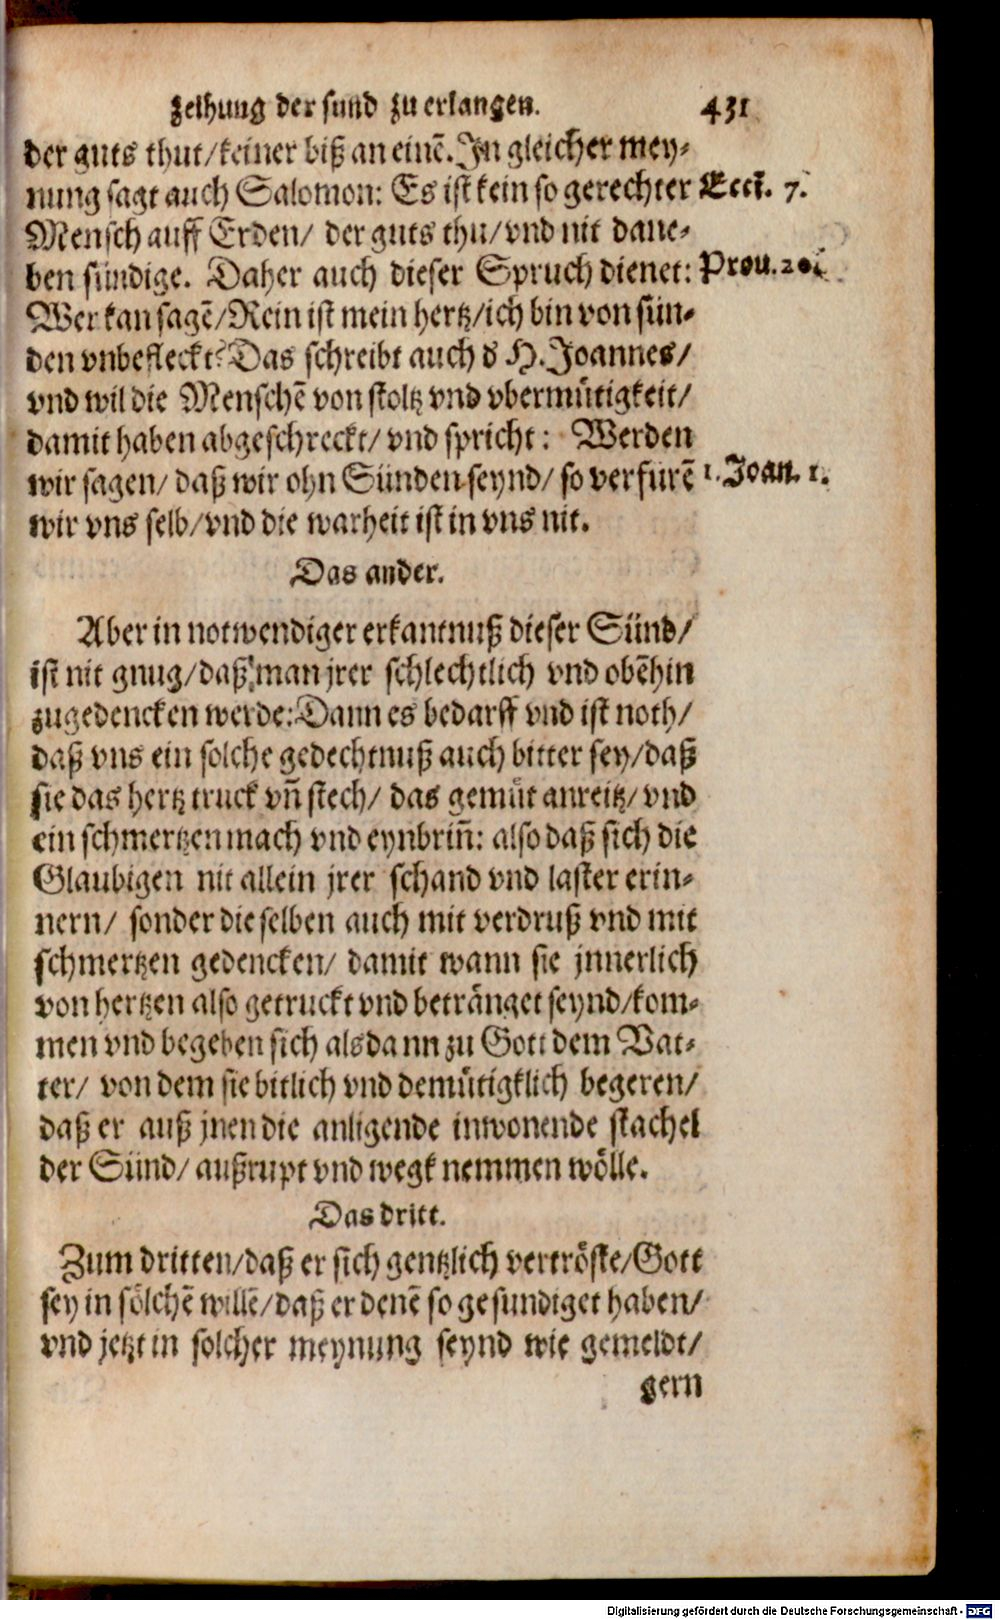 zeihung der sund zu erlangen. 431
der guts thut/keiner biß an einē. In gleicher mey-
nung sagt auch Salomon: Es ist kein so gerechter Eccl. 7.
Mensch auff Erden/ der guts thu/vnd nit dane-
ben sündige. Daher auch dieser Spruch dienet: Prou. 20.
Wer kan sagē/Rein ist mein hertz/ich bin von sün-
den vnbefleckt? Das schreibt auch d H. Joannes/
vnd wil die Menschē von stoltz vnd vbermütigkeit/
damit haben abgeschreckt/ vnd spricht: Werden
wir sagen/ daß wir ohn Sünden seynd/ so verfürē 1. Joan. 1.
wir vns selb/vnd die warheit ist in vns nit.
Das ander.
Aber in notwendiger erkantnuß dieser Sünd/
ist nit gnug/daß man jrer schlechtlich vnd obēhin
zugedencken werde: Dann es bedarff vnd ist noth/
daß vns ein solche gedechtnuß auch bitter sey/daß
sie das hertz truck vñ stech/ das gemüt anreitz/ vnd
ein schmertzen mach vnd eynbriñ: also daß sich die
Glaubigen nit allein jrer schand vnd laster erin-
nern/ sonder dieselben auch mit verdruß vnd mit
schmertzen gedencken/ damit wann sie jnnerlich
von hertzen also getruckt vnd betränget seynd/kom-
men vnd begeben sich alsdann zu Gott dem Vat-
ter/ von dem sie bitlich vnd demütigklich begeren/
daß er auß jnen die anligende inwonende stachel
der Sünd/ außrupt vnd wegk nemmen wölle.
Das dritt.
Zum dritten/daß er sich gentzlich vertröste/Gott
sey in sölchē willē/daß er denē so gesundiget haben/
vnd jetzt in solcher meynung seynd wie gemeldt/
gern
Digitalisierung gefördert durch die Deutsche Forschungsgemeinschaft - DFG